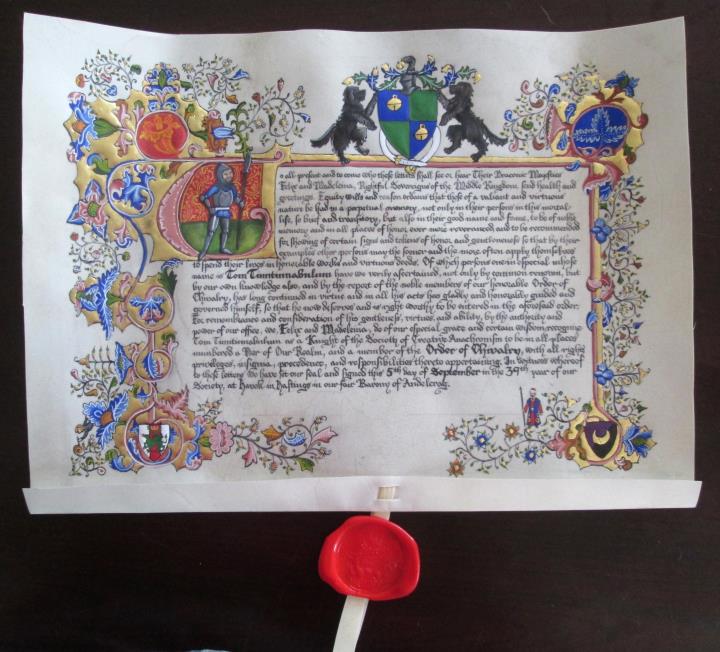 To all present and to come who these letters shall see or hear Their Draconic Majesties
Felix and Madelena, Rightful Sovereigns of the Middle Kingdom, send health and
greetings. Equity wills and reason ordains that those of a valiant and virtuous
nature be had in a perpetual memory, not only in their persons in this mortal
life, so brief and transitory, but also in their good name and fame, to be of noble
memory and in all places of honor ever more reverenced and to be recommended
for showing of certain signs and tokens of honor and gentlenesse so that by their
examples other persons may the sooner and the more often apply themselves
to spend their lives in honorable works and virtuous deeds. Of which persons one in especial whose
name is Tom Tinntinnabulum have we verily ascertained, not only by common renown, but
by our own knowledge also, and by the report of the noble members of our honorable Order of
Chivalry, has long continued in virtue and in all his acts has gladly and honorably guided and
governed himself, so that he now deserves and is right worthy to be entered in the aforesaid order.
For remembrance and consideration of his gentleness, virtue, and ability, by the authority and
power of our office, we, Felix and Madelena, do of our especial grace and certain wisdom, recognize
Tom Tinntinnabulum as a Knight of the Society of Creative Anachronism to be in all places
numbered a Peer of Our Realm, and a member of the Order of Chivalry, with all rights
privileges, insignia, precedence, and responsibilities thereto appertaining. In witness whereof
to these letters we have set our seal and signed this 5th day of September in the 39th year of our
Society, at Havok in Hastings in our fair Barony of Andelcrag.